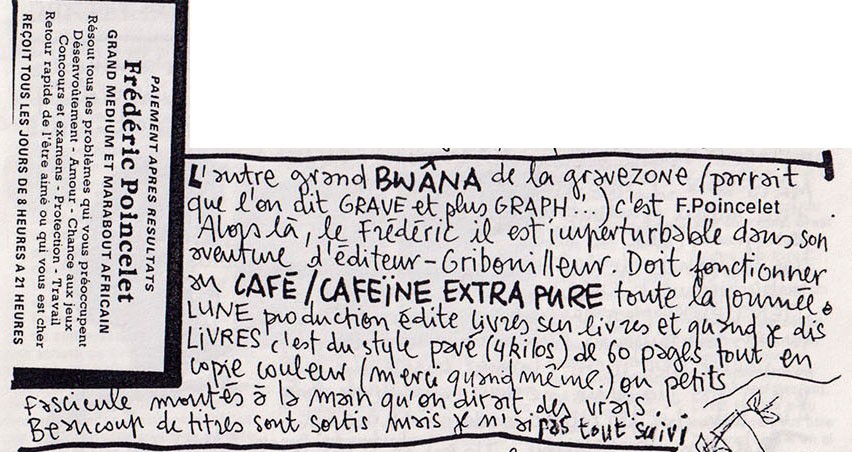 PAIEMENT APRES RESULTATS
Frédéric Poincelet
GRAND MEDIUM ET MARABOUT AFRICAIN
Résout tous les problèmes qui vous préoccupent
Désenvoûtement - Amour - Chance aux jeux
Concours et examens - Protection - Travail
Retour rapide de l'être aimé ou qui vous est cher
REÇOIT TOUS LES JOURS DE 8 HEURES A 21 HEURES
L'autre grand BWÂNA de la gravezone (parrait
que l'on dit GRAVE et plus GRAPH!...) c'est F.Poincelet
Alors là, le Frédéric il est imperturbable dans son
aventure d'éditeur-Gribouilleur. Doit fonctionner
au CAFÉ/CAFEÏNE EXTRA PURE toute la journée.
LUNE production édite livres sur livres et quand je dis
LIVRES c'est du style pavé (4 kilos) de 60 pages tout en
copie couleur (merci quand même.) ou petits
fascicule montés à la main qu'on dirait des vrais.
Beaucoup de titres sont sortis mais je n'ai pas tout suivi